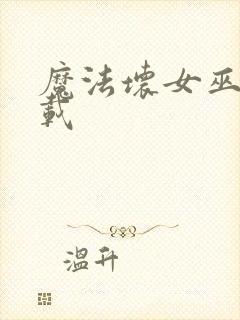 魔法坏女巫
载
温升